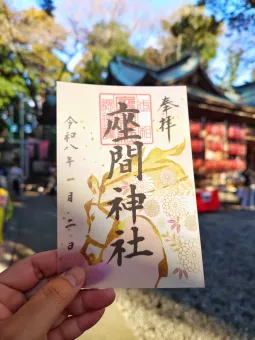 奉拝
座間神社
令和八年一月二日